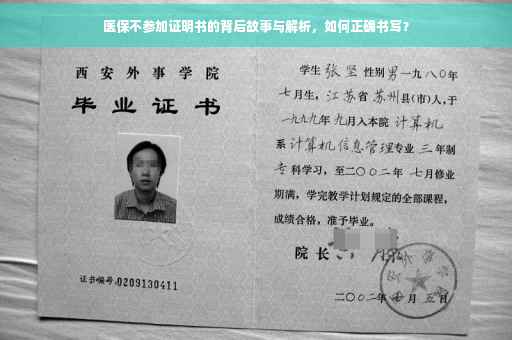 医保不参加证明书的背后故事与解析，如何正确书写？
西安外事学院
毕业证书
证书编号:0209130411
学生 张坚 性别 男 一九八〇年
七月生，江苏省 苏州 县(市)人，于
一九九九年 九月入本院 计算机
系 计算机信息管理 专业 三 年制
专 科学习，至二〇〇二年 七月修业
期满，学完教学计划规定的全部课程，
成绩合格，准予毕业。
院长
二〇〇二年 月 五日